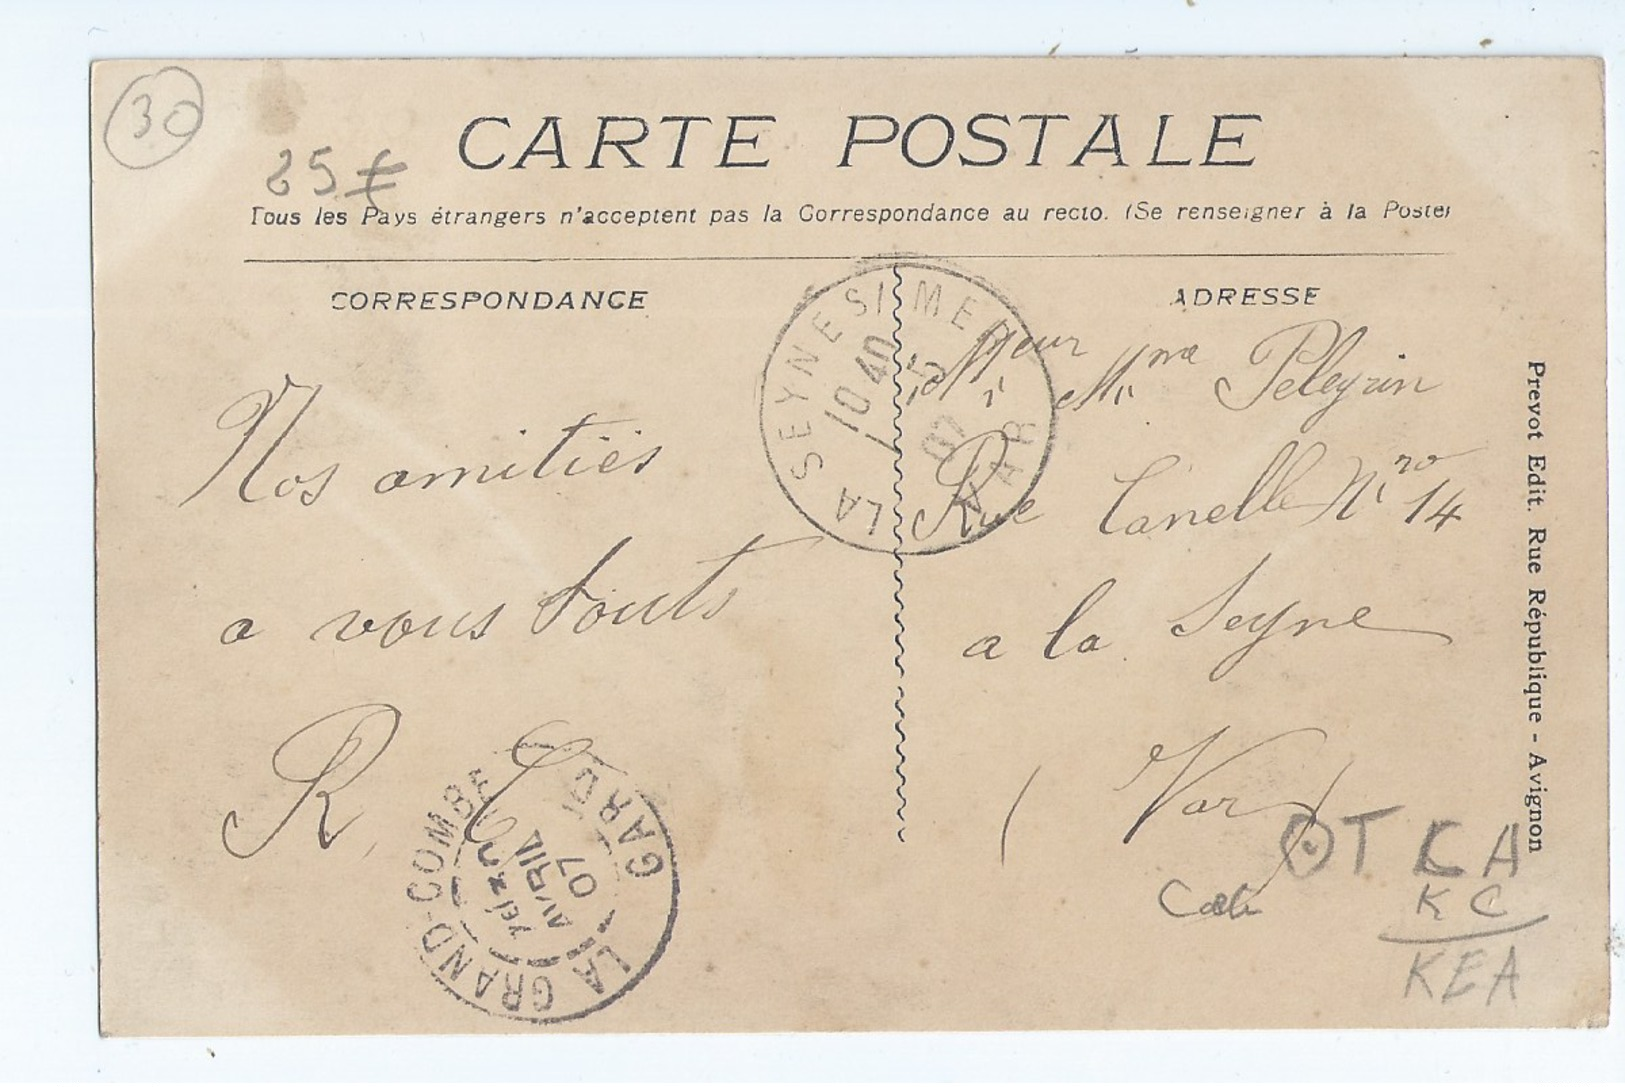 30
25 €
CARTE POSTALE
Tous les Pays étrangers n'acceptent pas la Correspondance au recto. (Se renseigner à la Poste)
CORRESPONDANCE
ADRESSE
LA SEYNE S/ MER
10 40
5
07
VAR
Nos amitiés
a vous touts
R. C
Mme Peleyrin
Rue Canelle Nro 14
a la Seyne
( Var )
LA GRAND-COMBE
AVRIL
07
GARD
Prevot Edit. Rue République - Avignon
OT CA
KC
KEA